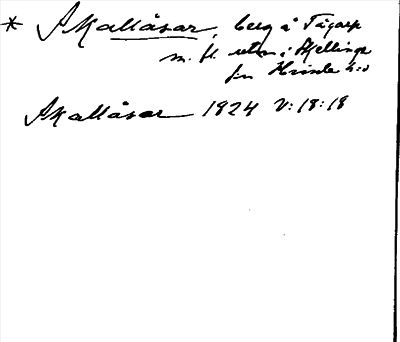 * Skallåsar, berg å Tågarp
m. fl. utm. i Skellinge
sn Himle h:d
Skallåsar 1824 V:18:18